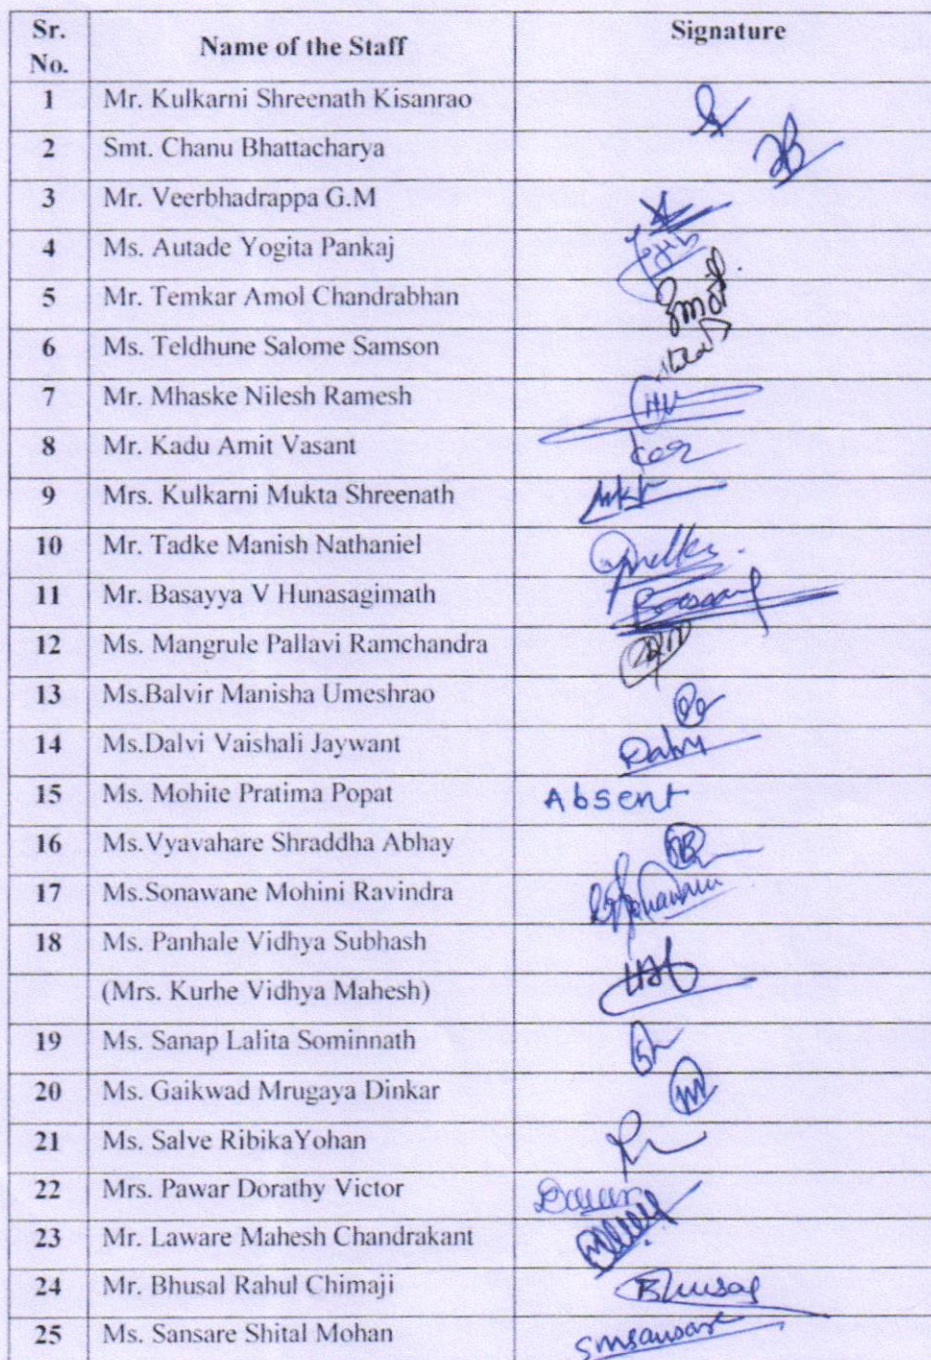 Sr. No. Name of the Staff Signature
1 Mr. Kulkarni Shreenath Kisanrao
2 Smt. Chanu Bhattacharya
3 Mr. Veerbhadrappa G.M
4 Ms. Autade Yogita Pankaj
5 Mr. Temkar Amol Chandrabhan
6 Ms. Teldhune Salome Samson
7 Mr. Mhaske Nilesh Ramesh
8 Mr. Kadu Amit Vasant
9 Mrs. Kulkarni Mukta Shreenath
10 Mr. Tadke Manish Nathaniel
11 Mr. Basayya V Hunasagimath
12 Ms. Mangrule Pallavi Ramchandra
13 Ms.Balvir Manisha Umeshrao
14 Ms.Dalvi Vaishali Jaywant
15 Ms. Mohite Pratima Popat Absent
16 Ms.Vyavahare Shraddha Abhay
17 Ms.Sonawane Mohini Ravindra
18 Ms. Panhale Vidhya Subhash
(Mrs. Kurhe Vidhya Mahesh)
19 Ms. Sanap Lalita Sominnath
20 Ms. Gaikwad Mrugaya Dinkar
21 Ms. Salve RibikaYohan
22 Mrs. Pawar Dorathy Victor
23 Mr. Laware Mahesh Chandrakant
24 Mr. Bhusal Rahul Chimaji Bhusal
25 Ms. Sansare Shital Mohan smsansare